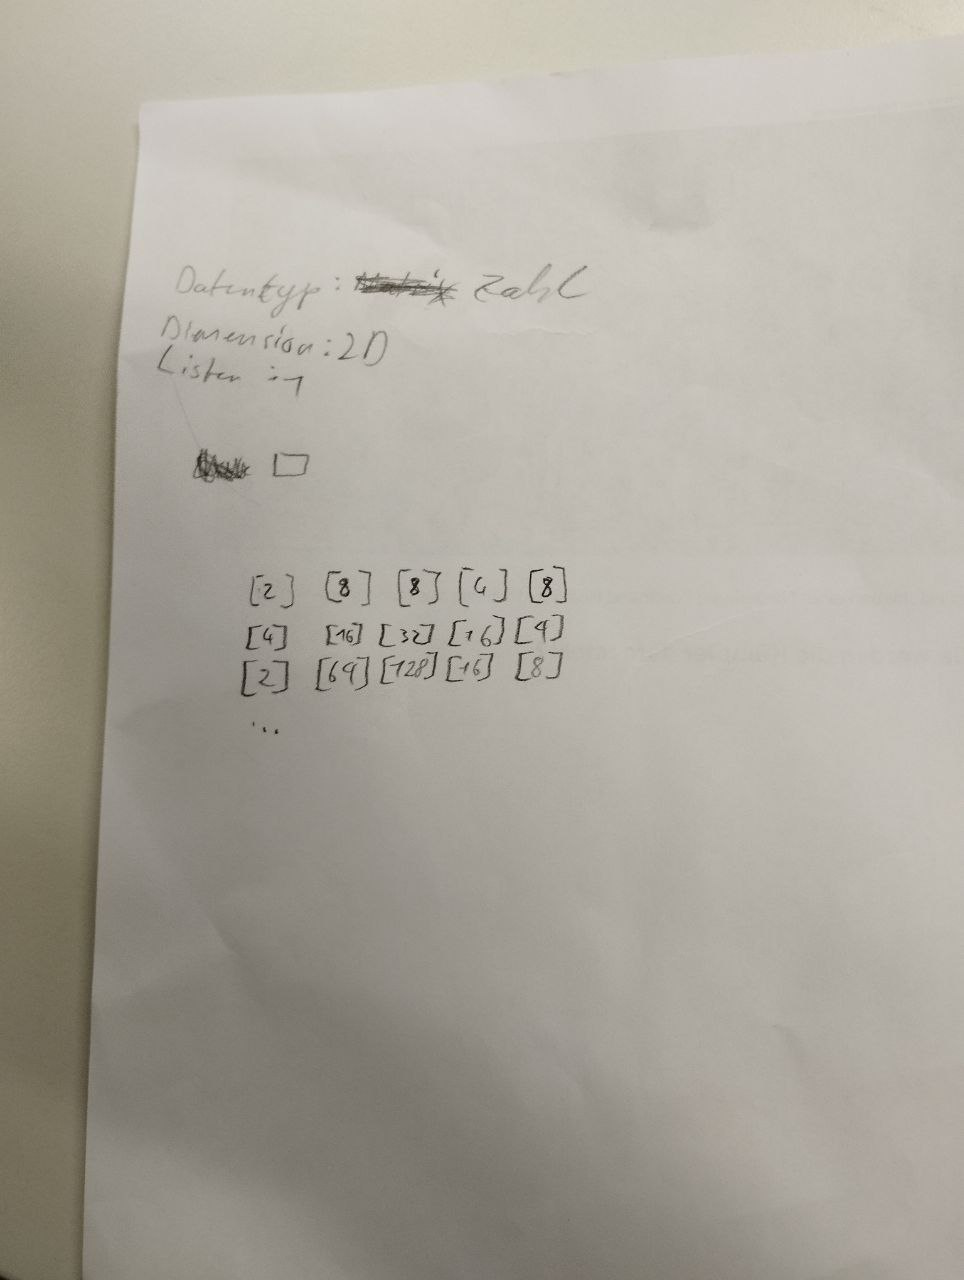 Datentyp: Zahl
Dimension: 2D
Listen: 1
[2] [8] [8] [4] [8]
[4] [16] [32] [16] [4]
[2] [64] [128] [16] [8]
...